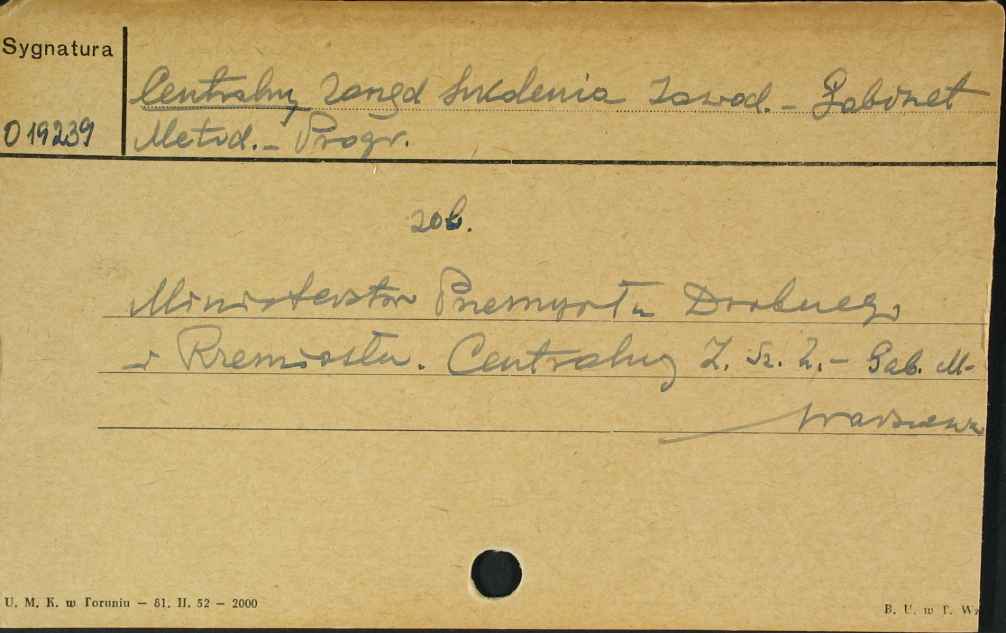 Sygnatura
Centralny Zarząd Szkolenia Zawod. - Gabinet
O 19239 Metod. - Progr.
zob.
Ministerstwo Przemysłu Drobnego
i Rzemiosła. Centralny Z. Sz. Z. - Gab. M-
Warszawa
U. M. K. w Toruniu — 81. II. 52 — 2000
B. U. w T. Wz